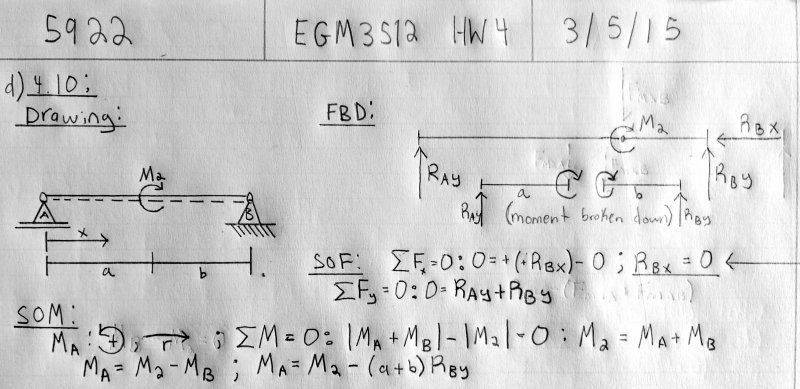 5922 EGM3512 HW4 3/5/15
d) 4.10;
Drawing:
FBD:
M₂
R_BX
R_AY
R_BY
a
b
R_AY (moment broken down) R_BY
M₂
A
B
x
a
b
SOF: ΣFₓ=0: 0=+(+R_BX)-0 ; R_BX = 0 ←
ΣF_y=0: 0=R_AY+R_BY
SOM:
M_A: +, r→ ; ΣM=0: |M_A + M_B|-|M₂|=0 : M₂ = M_A + M_B
M_A = M₂ - M_B ; M_A = M₂ - (a+b) R_BY